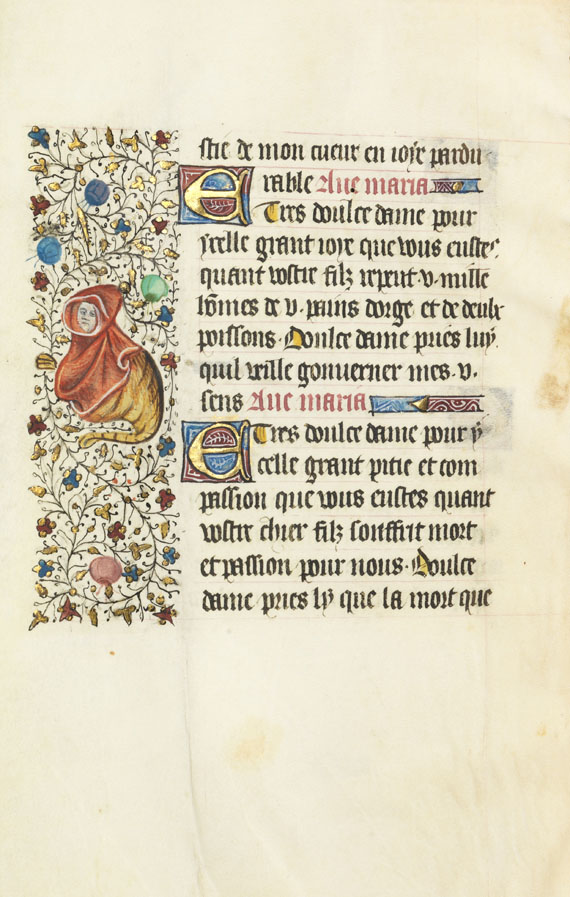 ftie de mon cueur en ioye pardu
rable Aue maria
E Tres doulce dame pour
ycelle grant ioye que vous eustes
quant vostre filz reput .v. mille
hõmes de .v. pains dorge et de deulx
poissons. Doulce dame pries luy
quil veille gouuerner mes .v.
sens Aue maria
E Tres doulce dame pour y
celle grant pitie et com
passion que vous eustes quant
vostre chier filz souffrit mort
et passion pour nous. Doulce
dame pries ly que la mort que